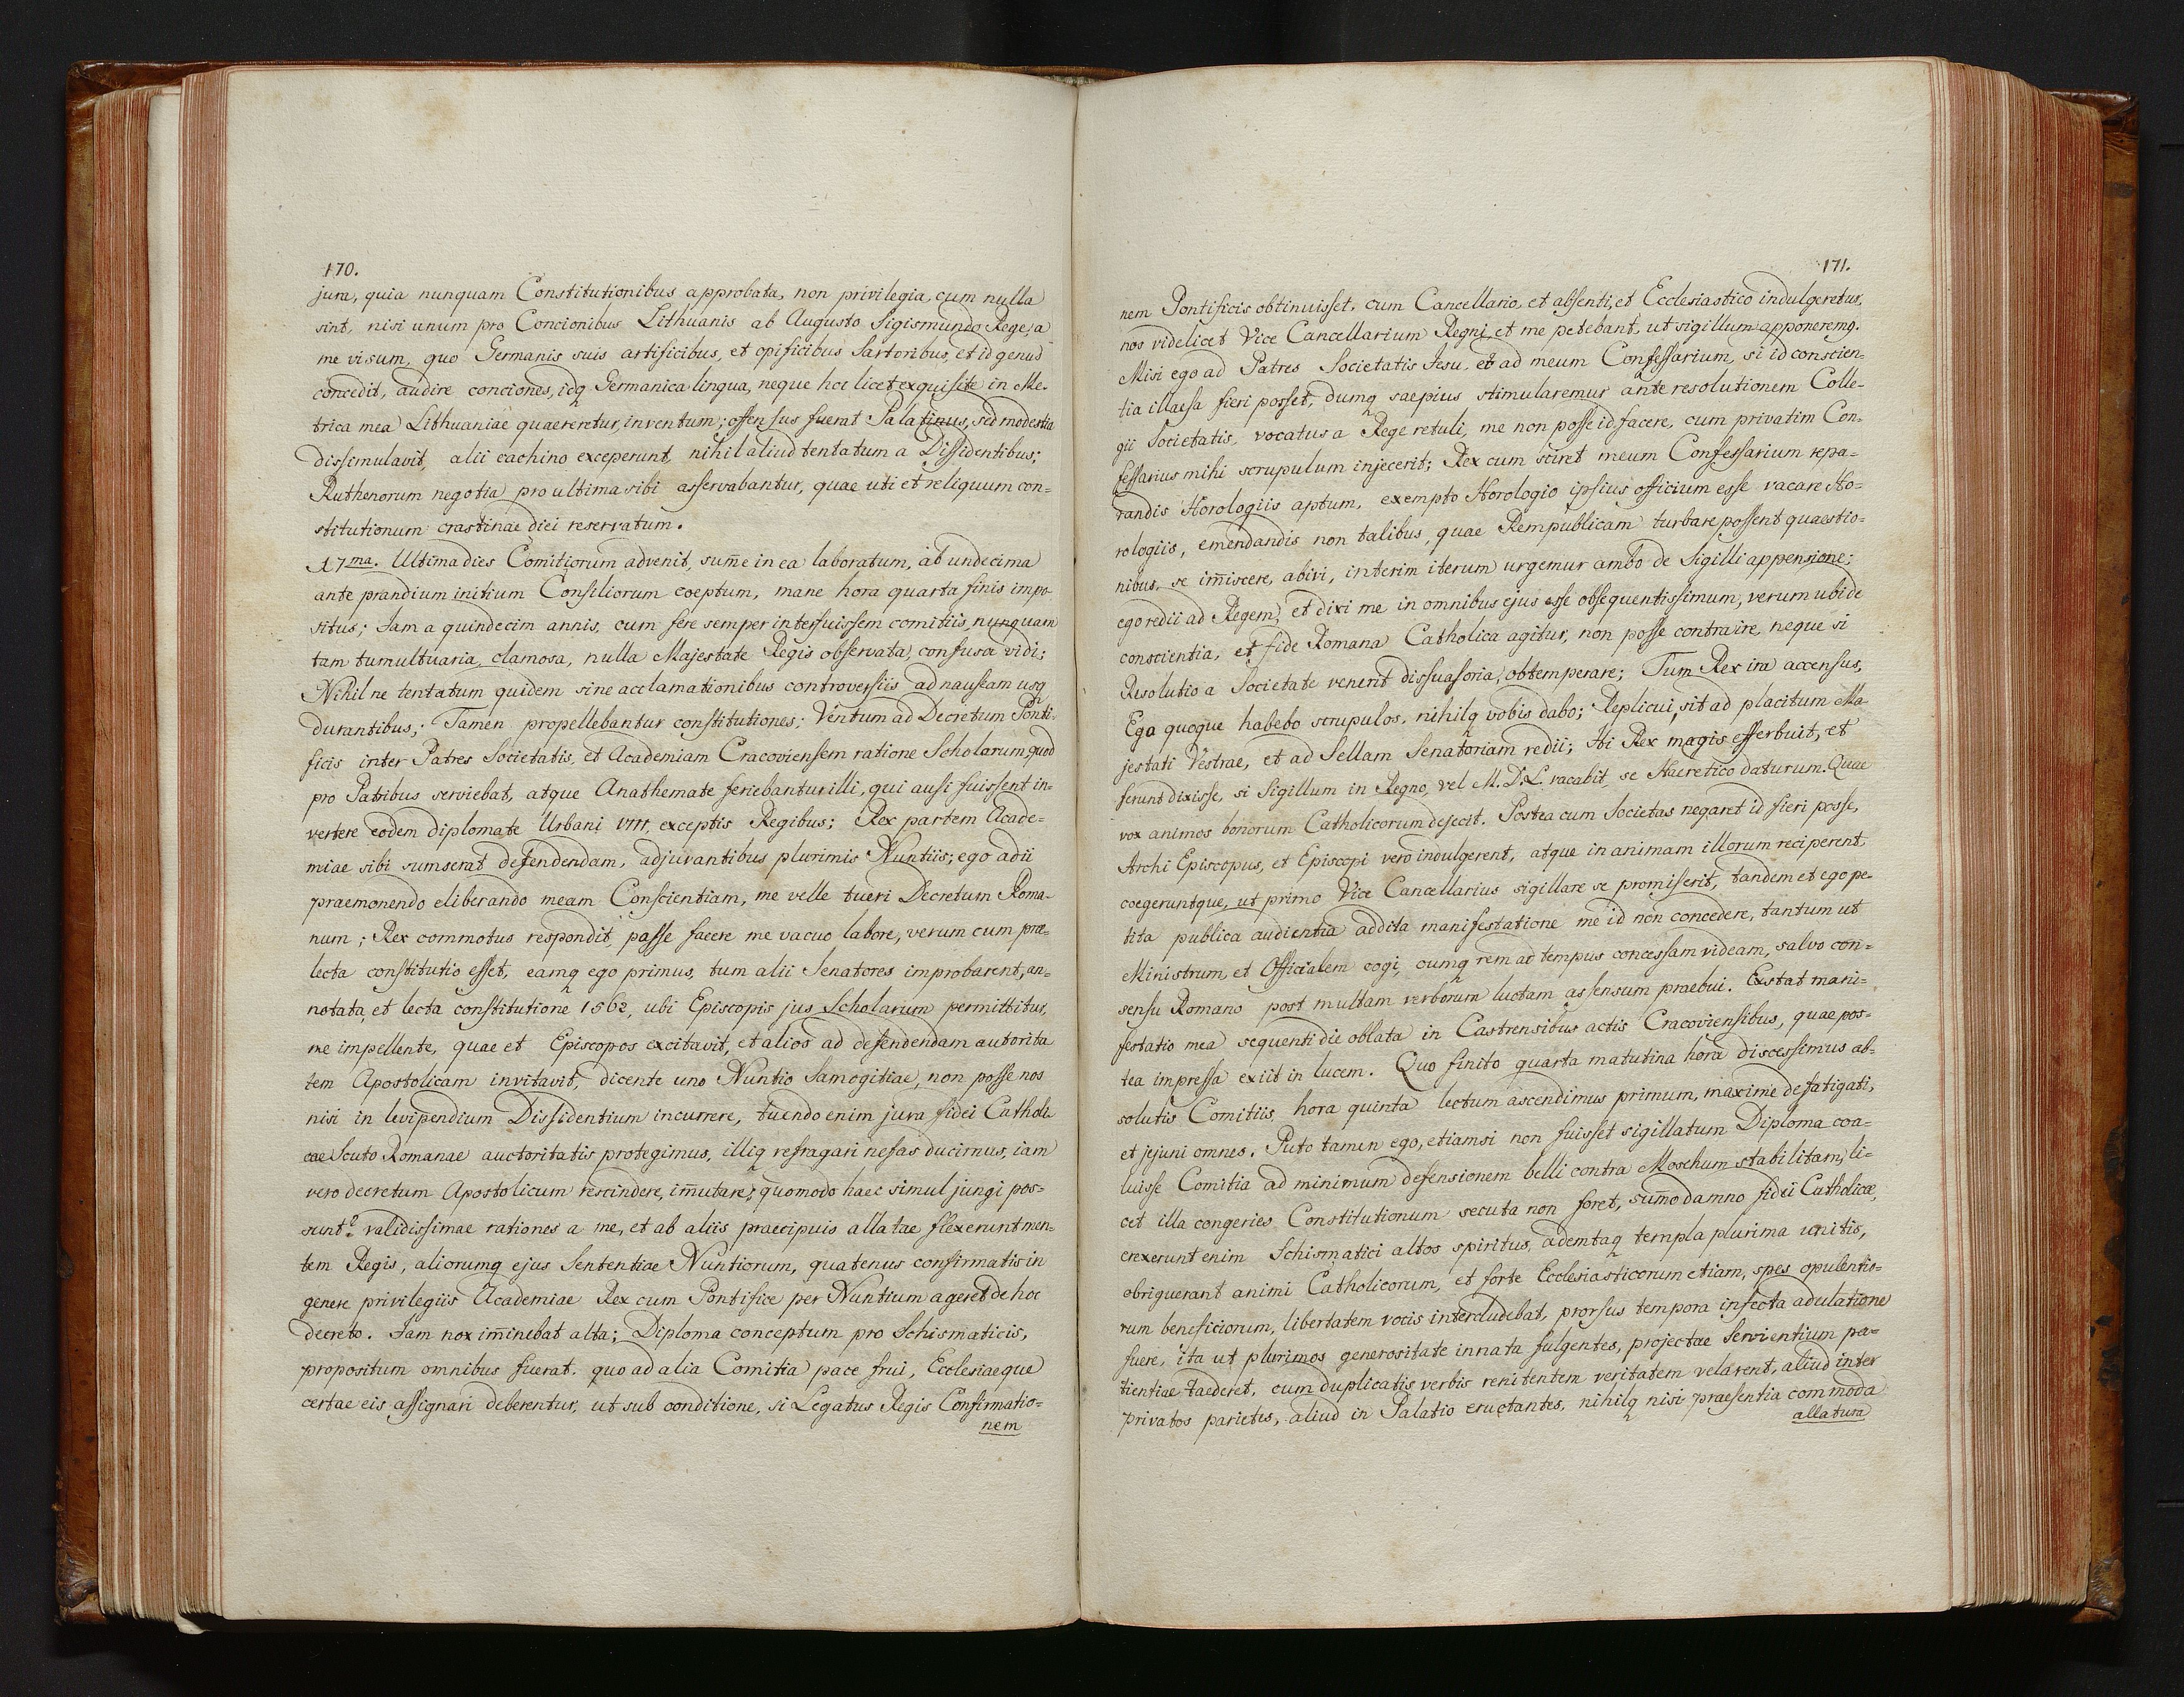 170.
jura, quia nunquam Constitutionibus approbata, non privilegia, cum nulla
sint, nisi unum pro Concionibus Lithuanis ab Augusto Sigismundo Rege, a
me visum, quo Germanis suis artificibus, et opificibus Sartoribus, et id genus
concedit, audire conciones, idq Germanica lingua, neque hoc licet exquisite in Me-
trica mea Lithuaniae quaereretur, inventum; offensus fuerat Palatinus, sed modestia
dissimulavit, alii cachino exceperunt, nihil aliud tentatum a Dissidentibus;
Ruthenorum negotia pro ultima sibi asservabantur, quae uti et reliquum con=
stitutionum crastinae diei reservatum.
17ma. Ultima dies Comitiorum advenit, sum̄e in ea laboratum, ab undecima
ante prandium initium Consiliorum coeptum, mane hora quarta finis impo-
situs; Jam a quindecim annis, cum fere semper interfuissem comitiis, nunquam
tam tumultuaria, clamosa, nulla Majestate Regis observata, confusa vidi;
Nihil ne tentatum quidem sine acclamationibus controversiis ad nauseam usq
durantibus; Tamen propellebantur constitutiones; Ventum ad Decretum Ponti-
ficis inter Patres Societatis, et Academiam Cracoviensem ratione Scholarum, quod
pro Patribus serviebat, atque Anathemate feriebantur illi, qui ausi fuissent in-
vertere eodem diplomate Urbani VIII, exceptis Regibus; Rex partem Acade=
miae sibi sumserat defendendam, adjuvantibus plurimis Nuntiis; ego adii
praemonendo eliberando meam Conscientiam, me velle tueri Decretum Roma-
num; Rex commotus respondit, passe facere me vacuo labore, verum cum prae-
lecta constitutio esset, eamq ego primus, tum alii Senatores improbarent, an=
notata, et lecta constitutione 1562, ubi Episcopis jus Scholarum permittitur,
me impellente, quae et Episcopos excitavit, et alios ad defendendam autorita
tem Apostolicam invitavit, dicente uno Nuntio Samogitiae, non posse nos
nisi in levipendium Dissidentium incurrere, tuendo enim jura fidei Catholi
cae Scuto Romanae auctoritatis protegimus, illiq refragari nefas ducimus, iam
vero decretum Apostolicum rescindere, im̄utare, quomodo haec simul jungi pos=
sunt? validissimae rationes a me, et ab aliis praecipuis allatae flexerunt men=
tem Regis, aliorumq ejus Sententiae Nuntiorum, quatenus confirmatis in
genere privilegiis Academiae Rex cum Pontifice per Nuntium ageret de hoc
decreto. Jam nox im̄inebat alta; Diploma conceptum pro Schismaticis,
propositum omnibus fuerat, quo ad alia Comitia pace frui, Ecclesiaeque
certae eis assignari deberentur, ut sub conditione, si Legatus Regis Confirmatio=
nem
171.
nem Pontificis obtinuisset, cum Cancellario, et absenti, et Ecclesiastico indulgeretur,
nos videlicet Vice Cancellarium Regni, et me petebant, ut sigillum apponeremq.
Misi ego ad Patres Societatis Jesu, et ad meum Confessarium, si id conscien=
tia illaesa fieri posset, dumq saepius stimularemur ante resolutionem Colle-
gii Societatis, vocatus a Rege retuli, me non posse id facere, cum privatim Con-
fessarius mihi scrupulum injecerit; Rex cum sciret meum Confessarium repa=
randis Horologiis aptum, exempto Horologio ipsius officium esse vacare Ho=
rologiis, emendandis non talibus, quae Rempublicam turbare possent quaestio=
nibus, se im̄iscere, abivi, interim iterum urgemur ambo de Sigilli appensione;
ego redii ad Regem, et dixi me in omnibus ejus esse obsequentissimum, verum ubi de
conscientia, et fide Romana Catholica agitur, non posse contraire, neque si
Resolutio a Societate venerit dissuasoria, obtemperare; Tum Rex ira accensus,
Ego quoque habebo scrupulos, nihilq vobis dabo; Replicui, sit ad placitum Ma
jestati Vestrae, et ad Sellam Senatoriam redii; Ibi Rex magis efferbuit, et
ferunt dixisse, si Sigillum in Regno, vel M. D. L. vacabit, se Haeretico daturum. Quae
vox animos bonorum Catholicorum dejecit. Postea cum Societas negaret id fieri posse,
Archi Episcopus, et Episcopi vero indulgerent, atque in animam illorum reciperent,
coegeruntque, ut primo Vice Cancellarius sigillare se promiserit, tandem et ego pe-
tita publica audientia addita manifestatione me id non concedere, tantum ut
Ministrum, et Officialem cogi, cumq rem ad tempus concessam videam, salvo con=
sensu Romano post multam verborum luctam assensum praebui. Exstat mani=
festatio mea sequenti die oblata in Castrensibus actis Cracoviensibus, quae pos=
tea impressa exiit in lucem. Quo finito quarta matutina hora discessimus ab=
solutis Comitiis, hora quinta lectum ascendimus primum, maxime defatigati,
et jejuni omnes. Puto tamen ego, etiamsi non fuisset sigillatum Diploma coa=
luisse Comitia ad minimum defensionem belli contra Moschum stabilitam, li=
cet illa congeries Constitutionum secuta non foret, sum̄o damno fidei Catholicae,
erexerunt enim Schismatici altos spiritus, ademtaq templa plurima unitis,
obriguerant animi Catholicorum, et forte Ecclesiasticorum etiam, spes opulentio=
rum beneficiorum, libertatem vocis intercludebat, prorsus tempora infecta adulatione
fuere, ita ut plurimos generositate innata fulgentes, projectae Servientium pa=
tientiae taederet, cum duplicatis verbis renitentem veritatem velarent, aliud inter
privatos parietes, aliud in Palatio eructantes, nihilq nisi praesentia commoda
allatura